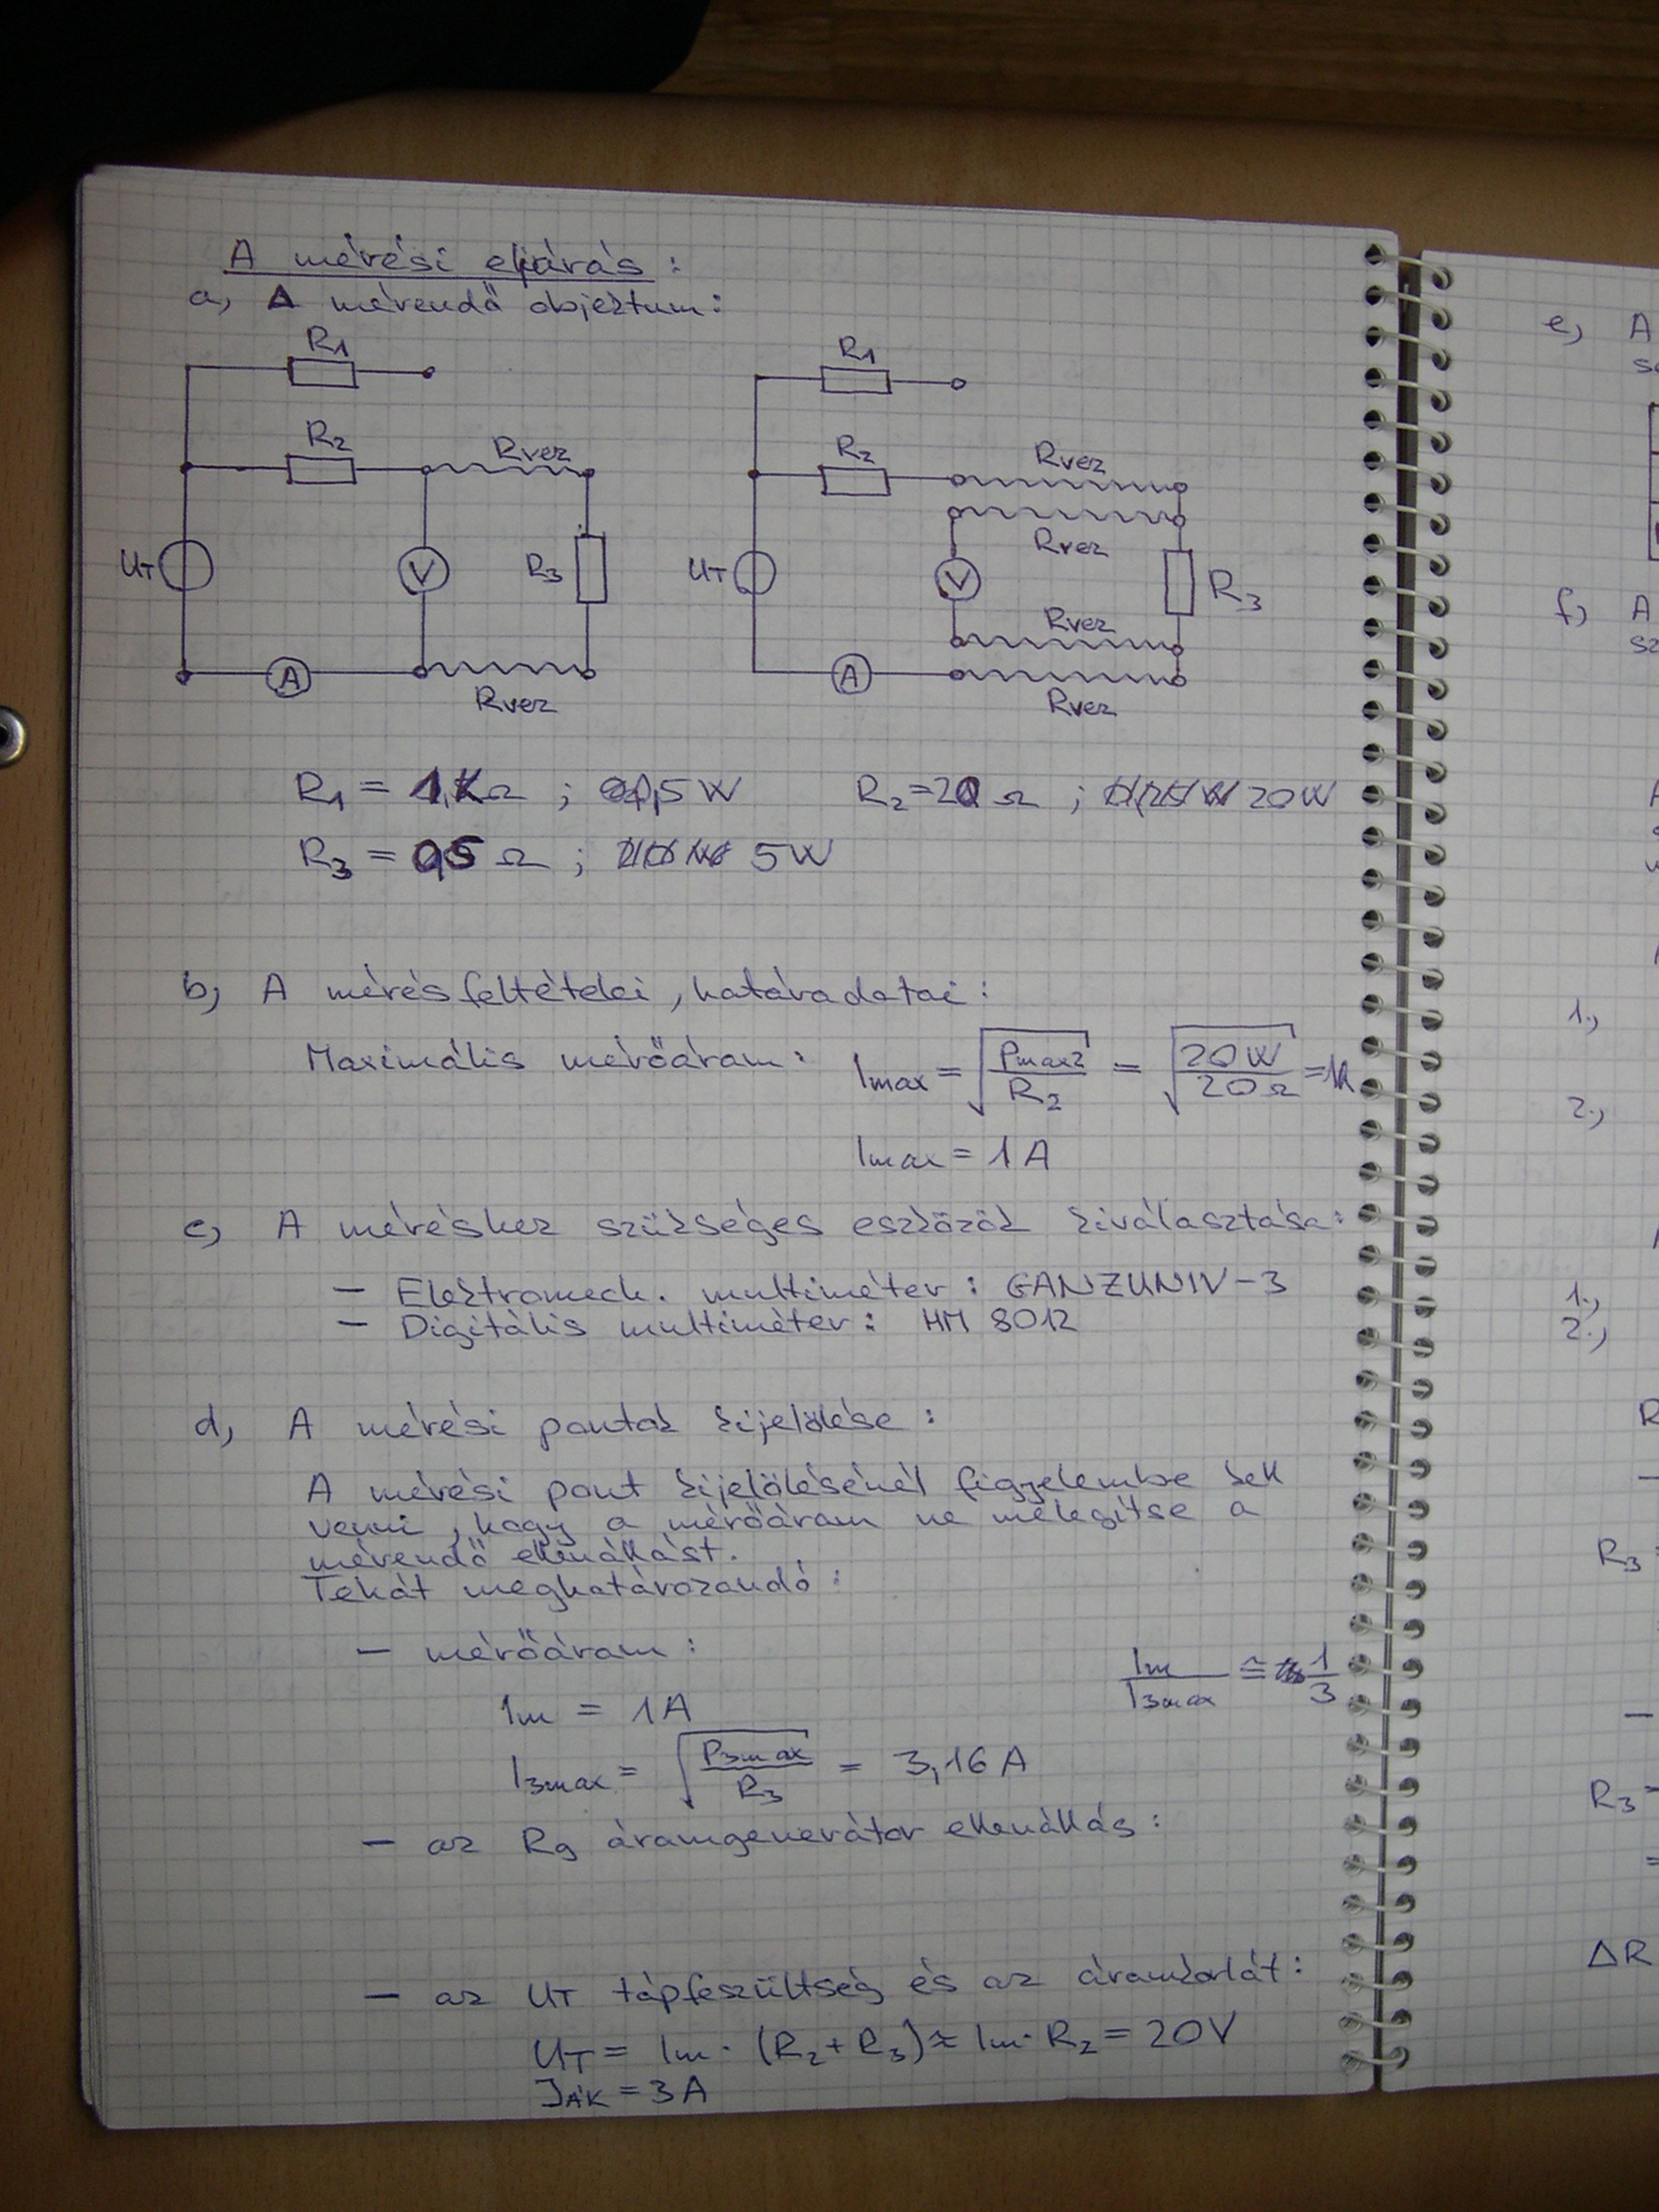 A mérési eljárás :
a, A mérendő objektum :
R1
R1
R2
Rvez
R2
Rvez
Rvez
UT
V
R3
UT
V
R3
Rvez
A
A
Rvez
Rvez
R1 = 1kΩ ; 0,5W R2=20 Ω ; 20W
R3 = 0,5 Ω ; 5W
b, A mérés feltételei, határadatai :
Maximális mérőáram : Imax = √(Pmax2/R2) = √(20W/20Ω) = 1A
Imax = 1A
c, A méréshez szükséges eszközök kiválasztása :
– Elektromech. multiméter : GANZUNIV-3
– Digitális multiméter : HM 8012
d, A mérési pontok kijelölése :
A mérési pont kijelölésénél figyelembe kell
venni, hogy a mérőáram ne melegítse a
mérendő ellenállást.
Tehát meghatározandó :
– mérőáram :
Im/I3max ≅ 1/3
Im = 1A
I3max = √(P3max/R3) = 3,16 A
– az Rg áramgenerátor ellenállás :
– az UT tápfeszültség és az áramkorlát :
UT = Im · (R2 + R3) ≈ Im · R2 = 20V
IÁK = 3A
e, A
f, A
sz
1.,
2.,
1.,
2.,
R
R3 =
R3 =
ΔR